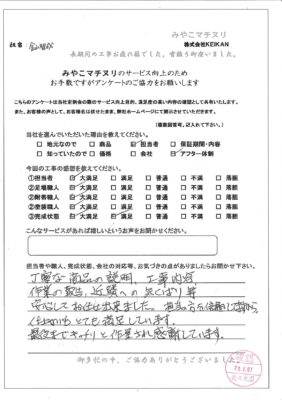 みやこマチヌリ
株式会社KEIKAN
長期間の工事お疲れ様でした。有難う御座いました。
みやこマチヌリのサービス向上のため
お手数ですがアンケートのご協力をお願いします
こちらのアンケートは当社定例会の際のサービス向上目的、満足度の高い内容の確認として共有いたします。
また、お客様の声として、お名前は伏せたまま、弊社ホームページにて開示させていただきます。
（複数回答可、記入れて下さい。）
当社を選んでいただいた理由を教えてください。
□ 地元なので □ 商品 ☑ 担当者 □ 保証期間・内容
□ 知っていたので □ 価格 □ 会社 ☑ アフター体制
今回の工事の感想を教えてください。
①担当者 ☑ 大満足 □ 満足 □ 普通 □ 不満 □ 落胆
②足場職人 ☑ 大満足 □ 満足 □ 普通 □ 不満 □ 落胆
③耐善職人 ☑ 大満足 □ 満足 □ 普通 □ 不満 □ 落胆
④塗装職人 ☑ 大満足 □ 満足 □ 普通 □ 不満 □ 落胆
⑤完成状態 ☑ 大満足 □ 満足 □ 普通 □ 不満 □ 落胆
こんなサービスがあれば嬉しいというお声をお聞かせください。
担当者や職人、完成状態、会社の対応等、お気づきの点がありましたらお聞かせ下さい。
丁寧な商品の説明、工事内容
作業の報告、近隣への気くばり等
安心してお任せ出来ました。
とても満足しています。
最後までキッチリと作業され感謝しています。
御多忙の中、ご協力ありがとうございました